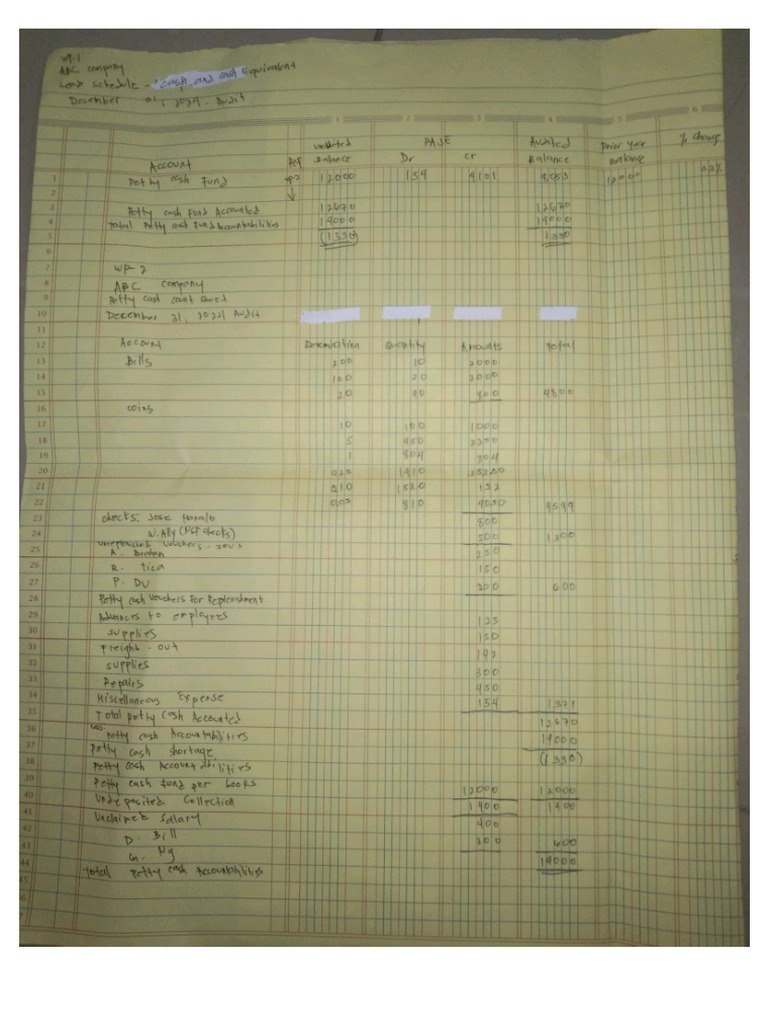 WP-1
ABC company
Lead schedule - Cash and cash Equivalent
December 31, 2024 - Audit
1 2 3 4 5 6
Account Ref Balance PAJE Dr Cr Audited Balance Prior Year Balance % Change
1 Petty cash Fund WP-2 12000 154 4101 12000
2
3 Petty cash Fund Accounted 12670 12670
4 total Petty cash Fund Accountabilities 14000 14000
5 (1330) 1330
6
7 WP-2
8 ABC company
9 Petty cash count sheet
10 December 31, Audit
11
12 Account Quantity Amounts total
13 Bills 200 10 2000
14 100 20 2000
15 20 40 800 4800
16 coins
17 10 100 1000
18 5 450 2250
19 1 804 804
20 0.25 1410
21 0.10 1520 152
22 0.05 810 4050 4599
23 checks: Jose 800
24 500 1300
25 A. 250
26 R. 150
27 P. Du 200 600
28 Petty cash vouchers for Replenishment
29 Advances to employees 125
30 supplies 150
31 Freight - out 147
32 supplies 300
33 Repairs 450
34 Miscellaneous Expense 154 1371
35 Total petty cash Accounted 12670
36 Less: petty cash Accountabilities 14000
37 Petty cash shortage (1330)
38 Petty cash Accountabilities
39 Petty cash fund per books 12000 12000
40 Undeposited Collection 1400 1400
41 Unclaimed Salary 400
42 D. Bill 200 600
43 G. Ng
44 total Petty cash Accountabilities 14000
45